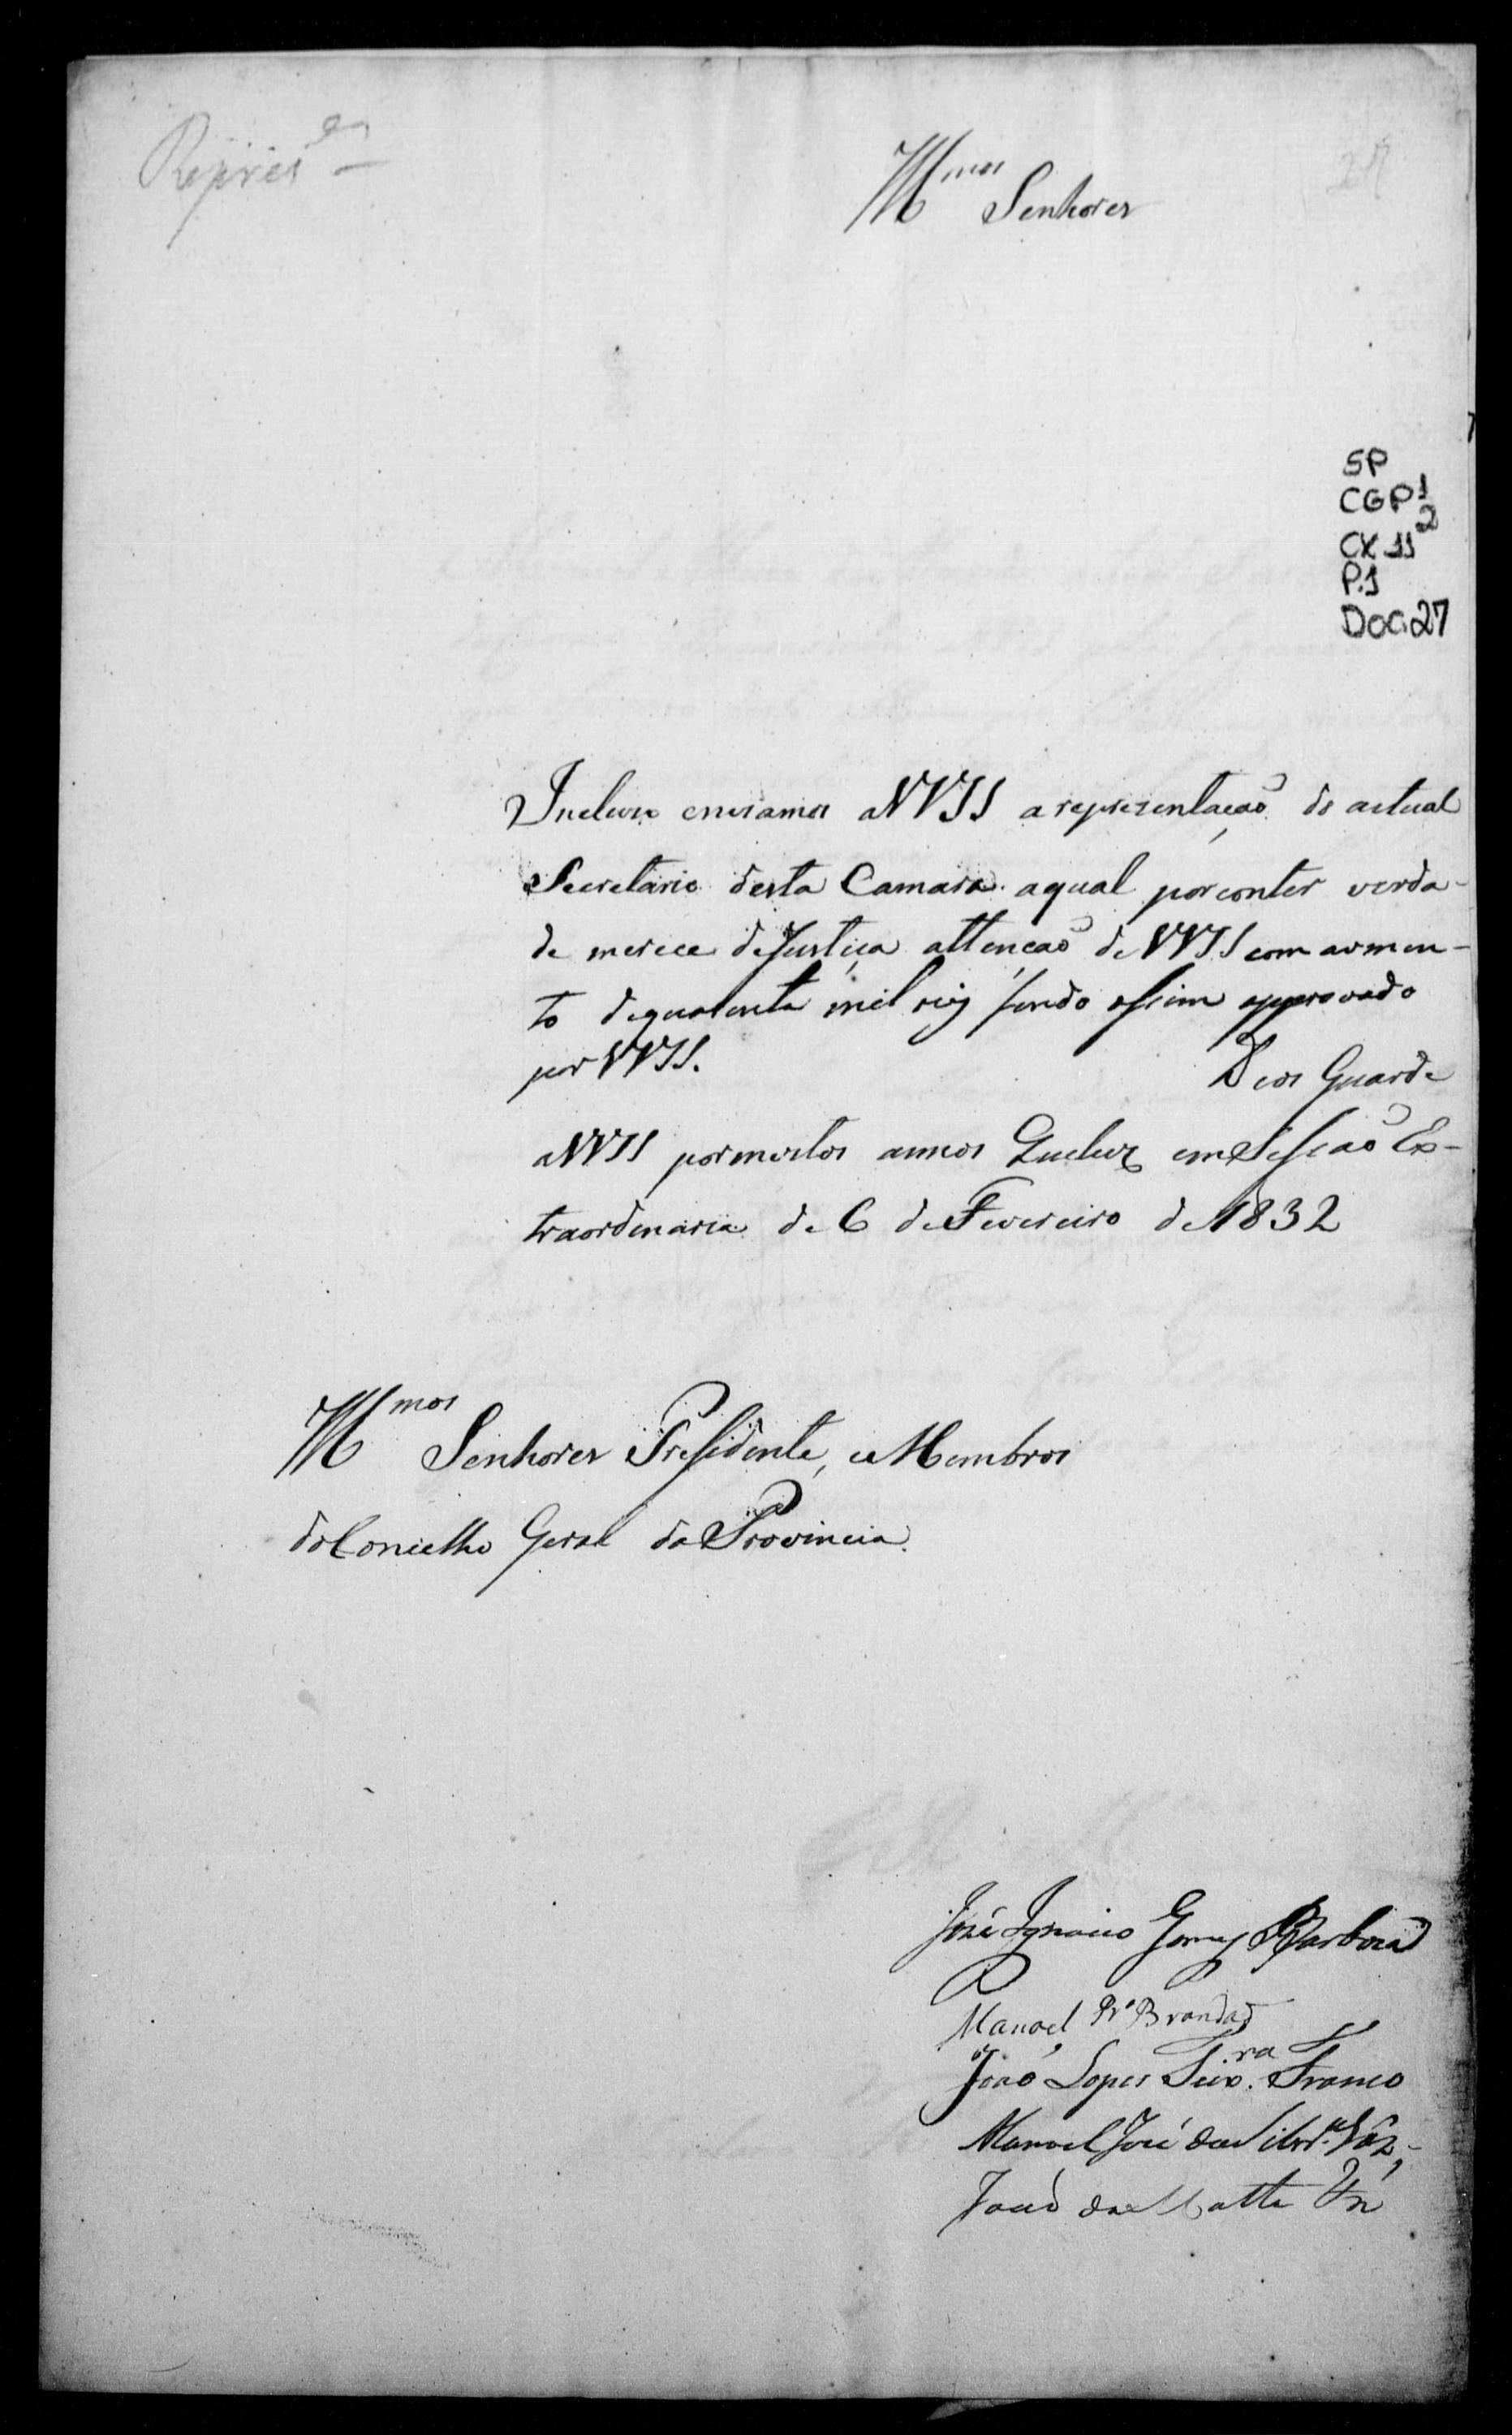 Repres.es
Illmos Senhores
27
SP
CGP1
2
CX 11
P.1
DOC.27
Incluzo enviamos aVVSS a reprezentação do actual
Secretario desta Camara aqual porconter verda-
de merece deJustiça attencaõ deVVSS com aumen-
to dequarenta mil reis sendo assim approvado
por VVSS.
Deos Guarde
aVVSS pormuitos annos Queluz emSessaõ Ex-
traordenaria de 6 deFevereiro de1832
Illmos Senhores Presidente, eMembros
doConselho Geral daProvincia.
José Ignacio Gomes Barboza
Manoel Pr.a Brandaõ
Joaõ Lopes Teix.ra Franco
Manoel José da
Joaõ da Motta